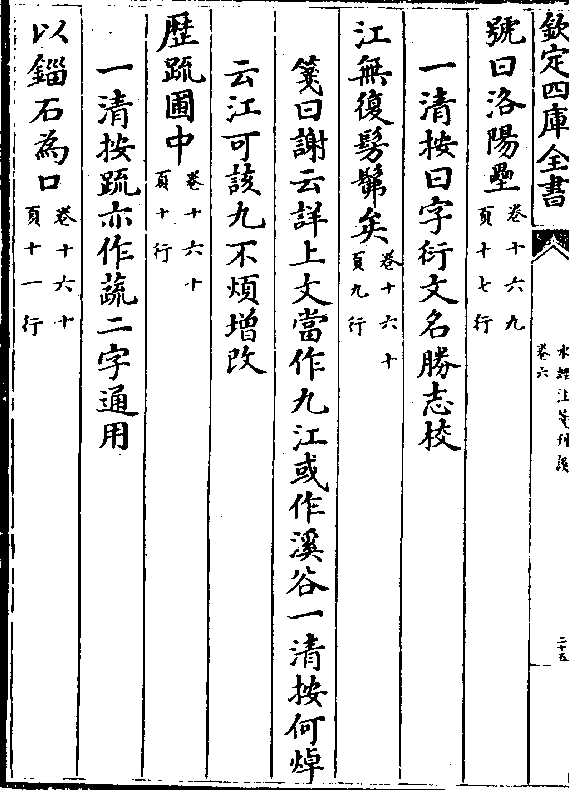 欽定四庫全書
水經注箋刊誤
卷六
二十五
號曰洛陽壘 卷十六九頁十七行
一清按曰字衍文名勝志校
江無復髣髴矣 卷十六十頁九行
箋曰謝云詳上文當作九江或作溪谷一清按何焯
云江可該九不煩增改
歷䟽圃中 卷十六十頁十行
一清按䟽亦作蔬二字通用
以錙石為口 卷十六十頁十一行